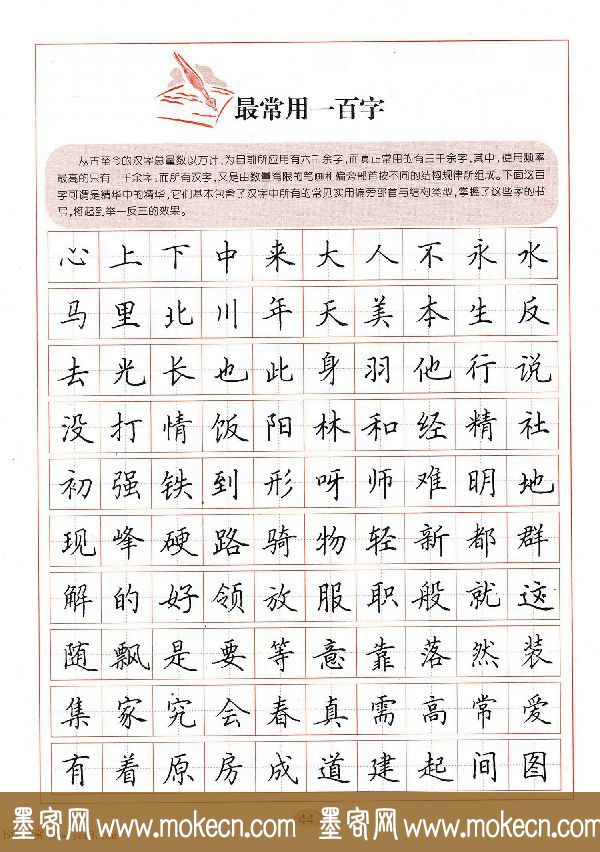 最常用一百字
从古至今的汉字总量数以万计,为目前所应用有六千余字,而真正常用的有三千余字,其中,使用频率
最高的只有一千余字,而所有汉字,又是由数量有限的笔画和偏旁部首按不同的结构规律所组成。下面这百
字可谓是精华中的精华,它们基本包含了汉字中所有的常见实用偏旁部首与结构类型,掌握了这些字的书
写,将起到举一反三的效果。
心上下中来大人不永水
马里北川年天美本生反
去光长也此身羽他行说
没打情饭阳林和经精社
初强铁到形呀师难明地
现峰硬路骑物轻新都群
解的好领放服职般就这
随飘是要等意靠落然装
集家究会春真需高常爱
有着原房成道建起间图
44
墨客网 www.mokecn.com 墨客网 www.mokecn.com